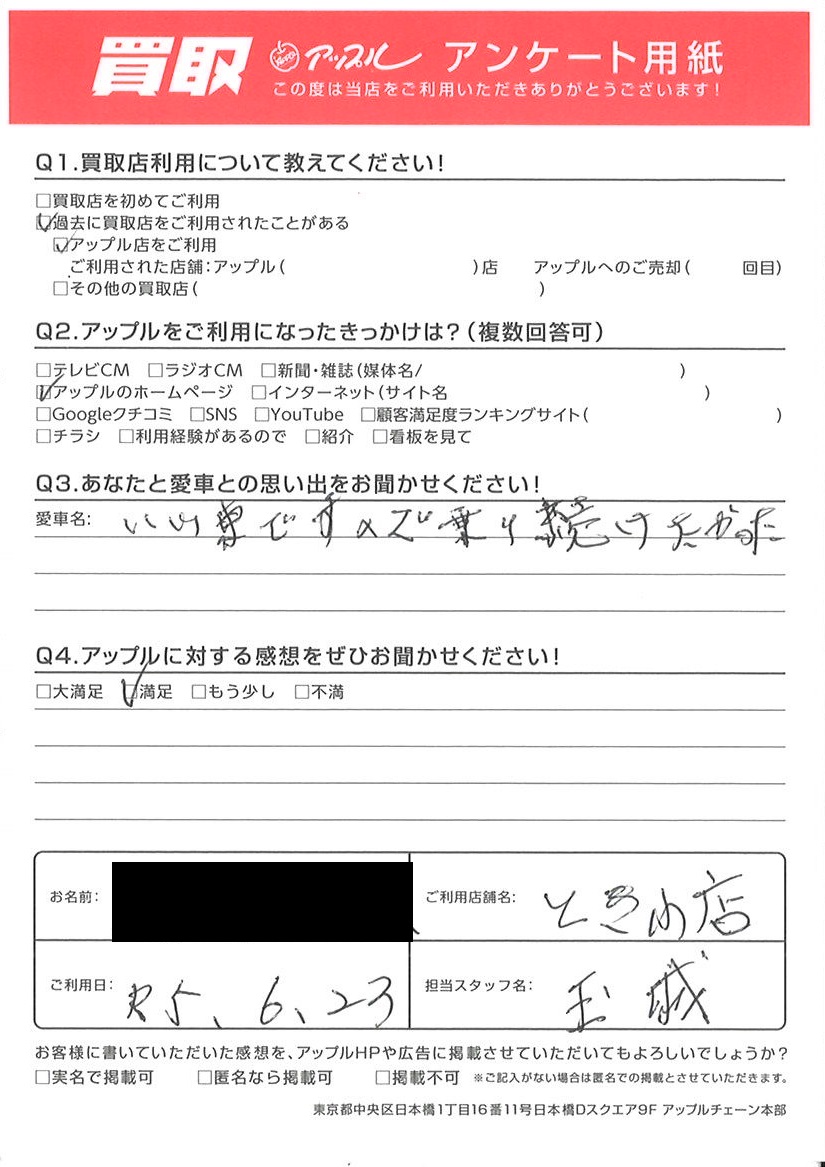 買取 アップル アンケート用紙
この度は当店をご利用いただきありがとうございます!
Q1.買取店利用について教えてください!
□買取店を初めてご利用
☑過去に買取店をご利用されたことがある
☑アップル店をご利用
ご利用された店舗:アップル( )店 アップルへのご売却( 回目)
□その他の買取店( )
Q2.アップルをご利用になったきっかけは?(複数回答可)
□テレビCM □ラジオCM □新聞・雑誌(媒体名/ )
☑アップルのホームページ □インターネット(サイト名 )
□Googleクチコミ □SNS □YouTube □顧客満足度ランキングサイト( )
□チラシ □利用経験があるので □紹介 □看板を見て
Q3.あなたと愛車との思い出をお聞かせください!
愛車名: いい車ですので乗り続けたかった
Q4.アップルに対する感想をぜひお聞かせください!
□大満足 ☑満足 □もう少し □不満
お名前: ご利用店舗名: ときわ店
ご利用日: R5、6、23 担当スタッフ名: 玉城
お客様に書いていただいた感想を、アップルHPや広告に掲載させていただいてもよろしいでしょうか?
□実名で掲載可 □匿名なら掲載可 □掲載不可 ※ご記入がない場合は匿名での掲載とさせていただきます。
東京都中央区日本橋1丁目16番11号日本橋Dスクエア9F アップルチェーン本部